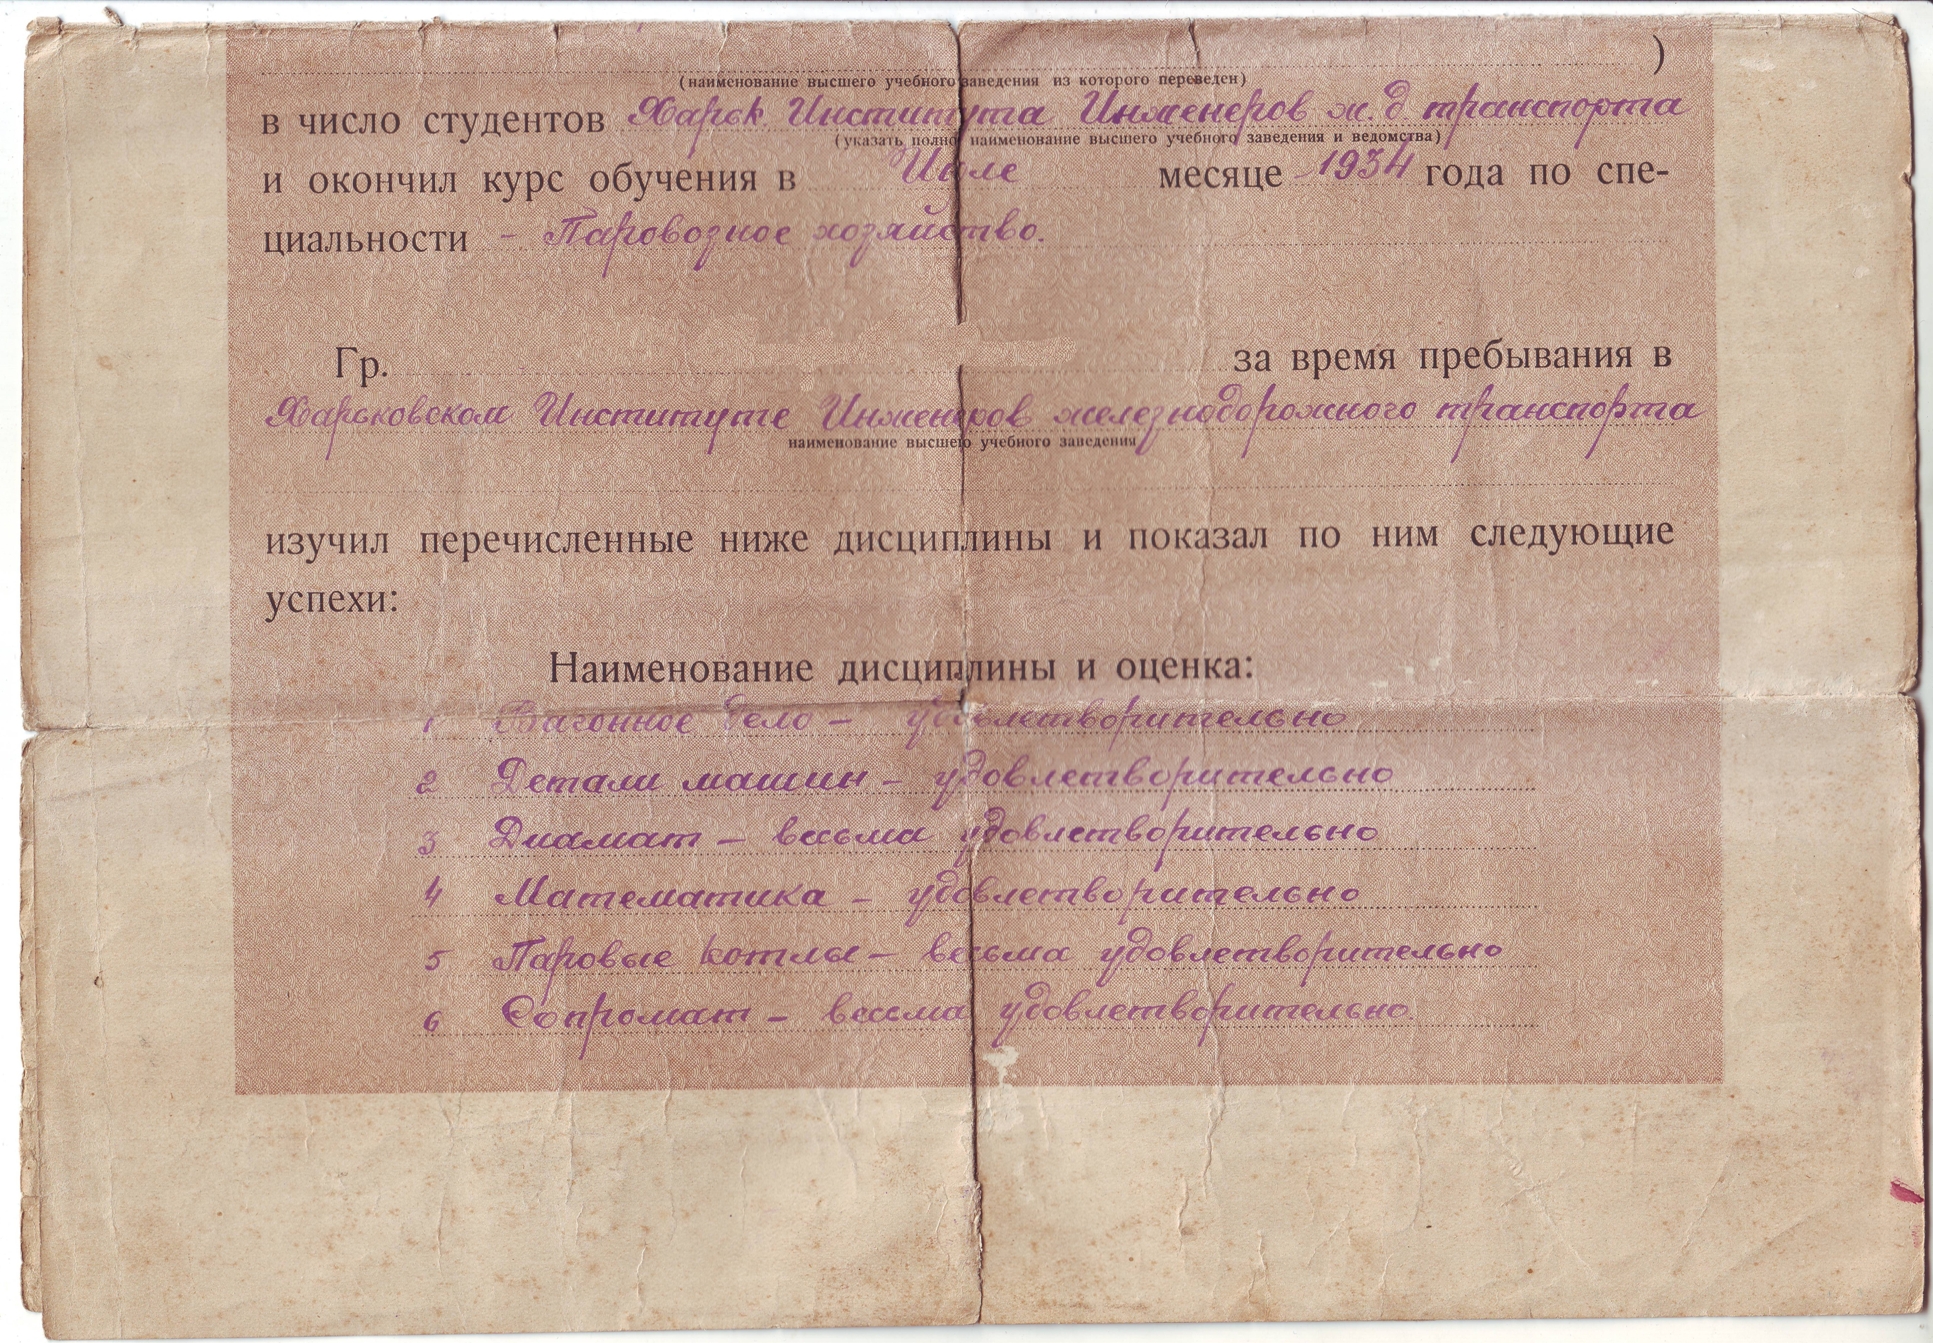 )
(наименование высшего учебного заведения из которого переведен)
в число студентов Харьк Института Инженеров ж.д транспорта
(указать полно наименование высшего учебного заведения и ведомства)
и окончил курс обучения в Июле месяце 1934 года по спе-
циальности - Паровозное хозяйство.
Гр. за время пребывания в
Харьковском Институте Инженеров железнодорожного транспорта
наименование высшего учебного заведения
изучил перечисленные ниже дисциплины и показал по ним следующие
успехи:
Наименование дисциплины и оценка:
1 Вагонное дело – удовлетворительно
2 Детали машин – удовлетворительно
3 Диамат – весьма удовлетворительно
4 Математика – удовлетворительно
5 Паровые котлы – весьма удовлетворительно
6 Сопромат – весьма удовлетворительно.